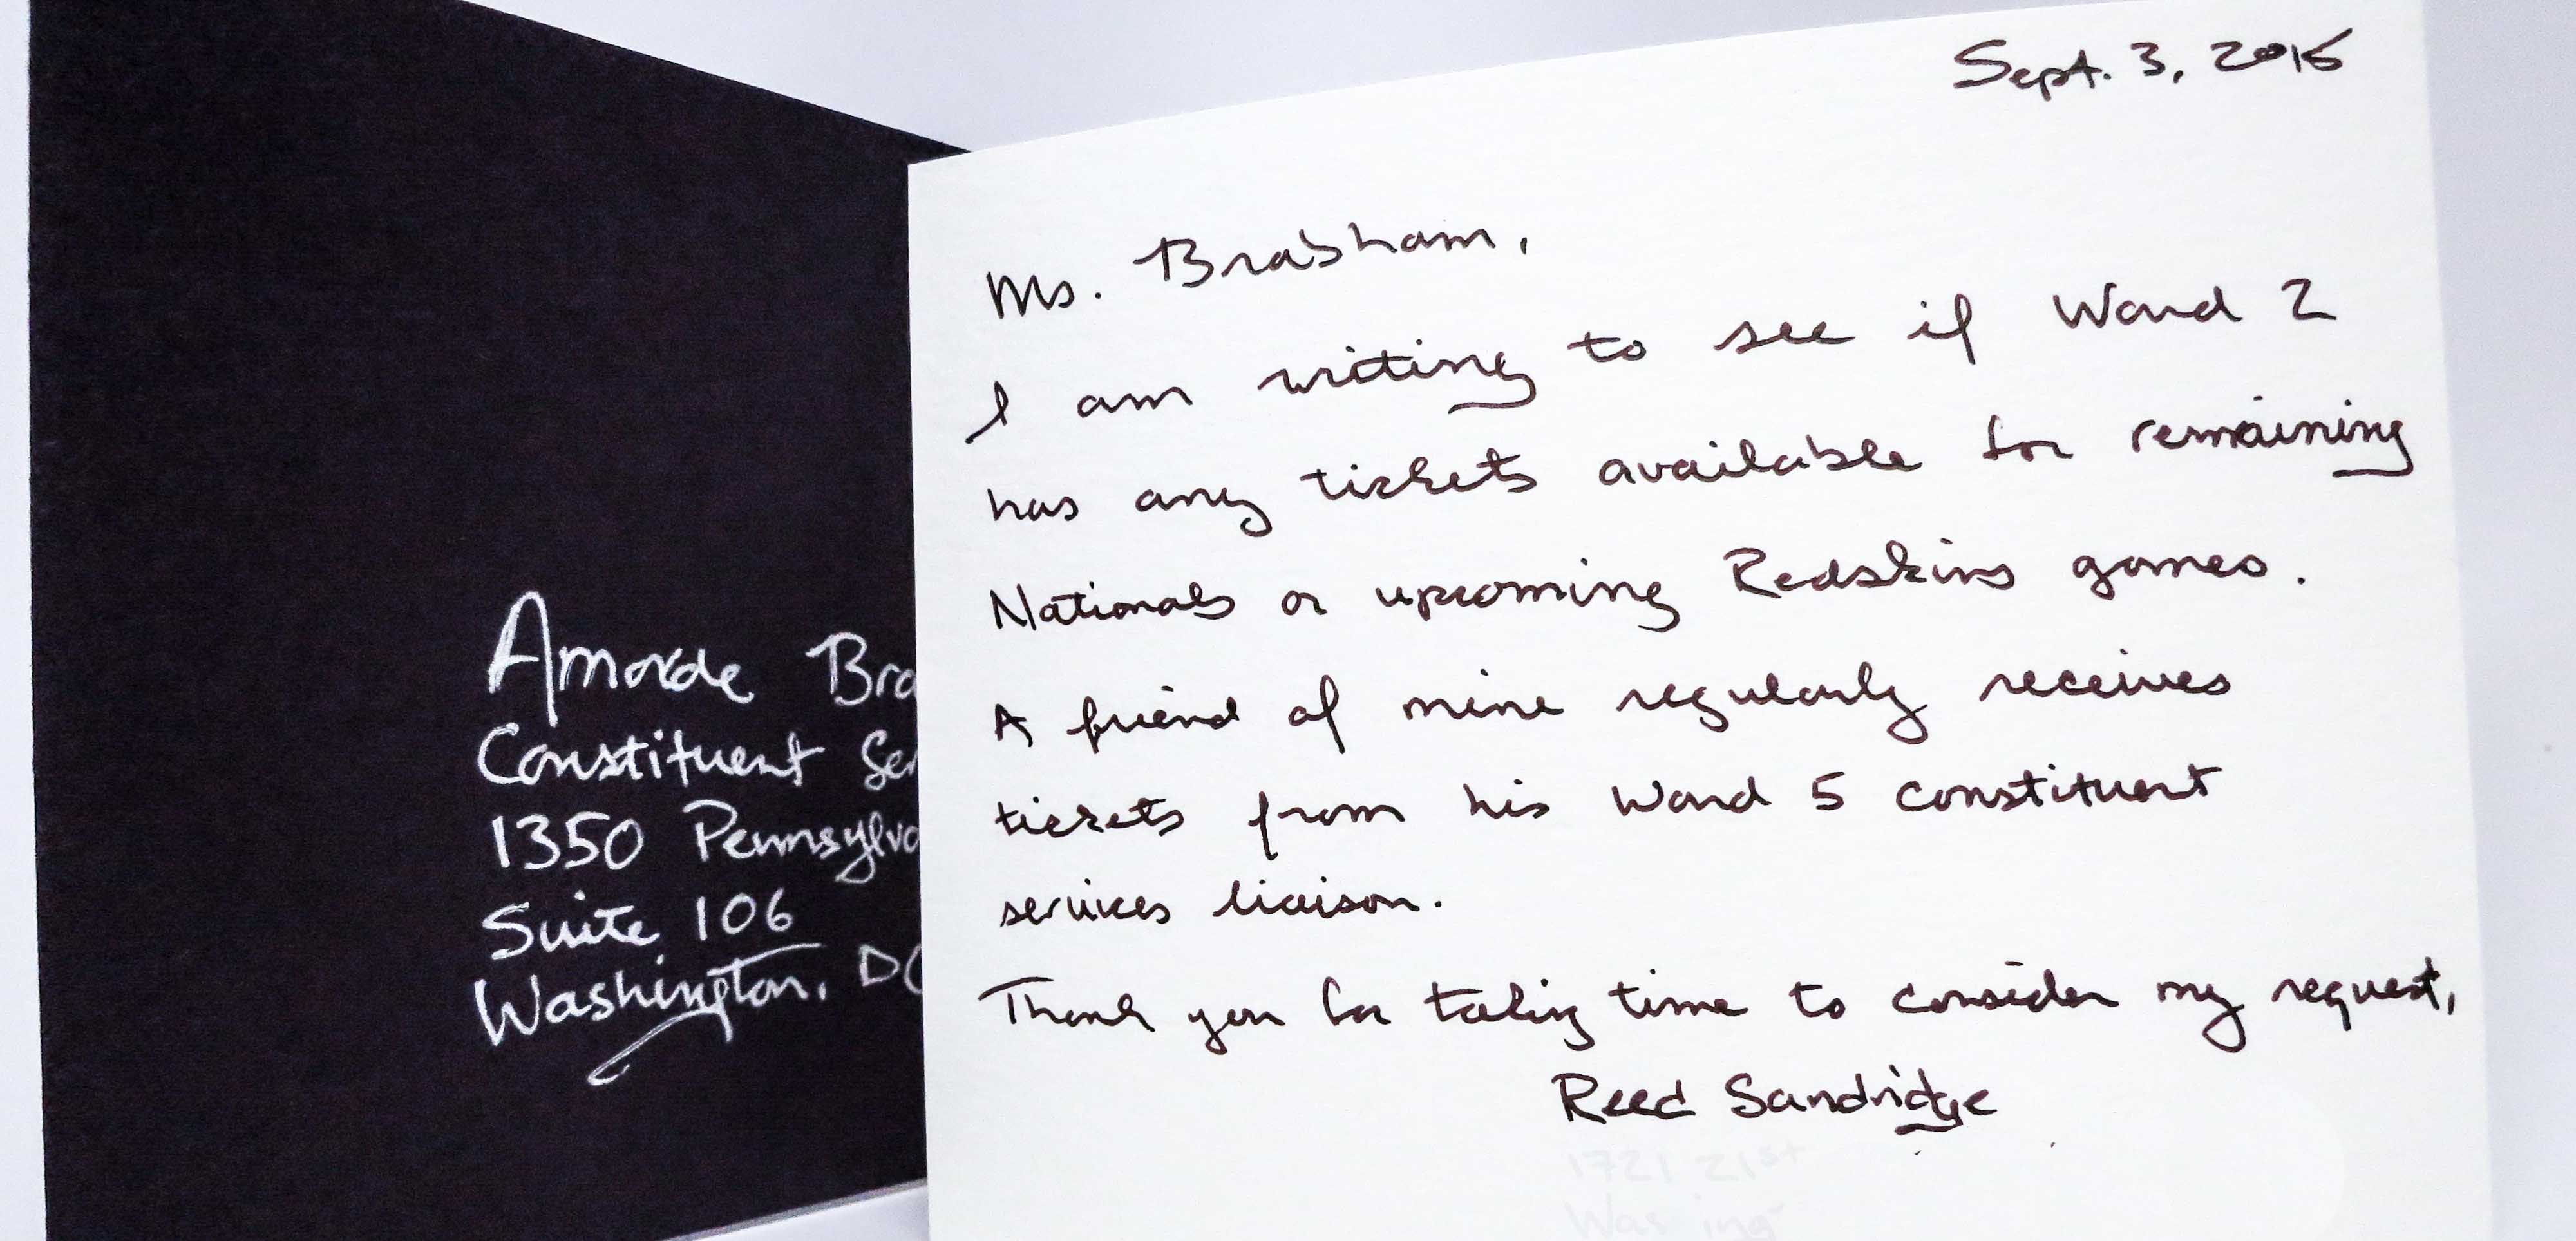 Amorde Bra
Constituent Ser
1350 Pennsylva
Suite 106
Washington, DC
Sept. 3, 2015
Ms. Brabham,
I am writing to see if Ward 2
has any tickets available for remaining
Nationals or upcoming Redskins games.
A friend of mine regularly receives
tickets from his Ward 5 constituent
services liaison.
Thank you for taking time to consider my request,
Reed Sandridge
1721 21st